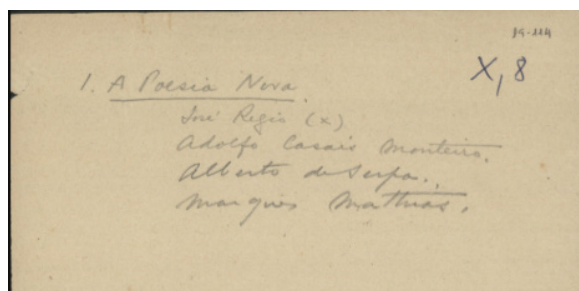 19-114
X, 8
1. A Poesia Nova.
José Regio (x)
Adolfo Casais Monteiro.
Alberto de Serpa.
Marques Mathias.